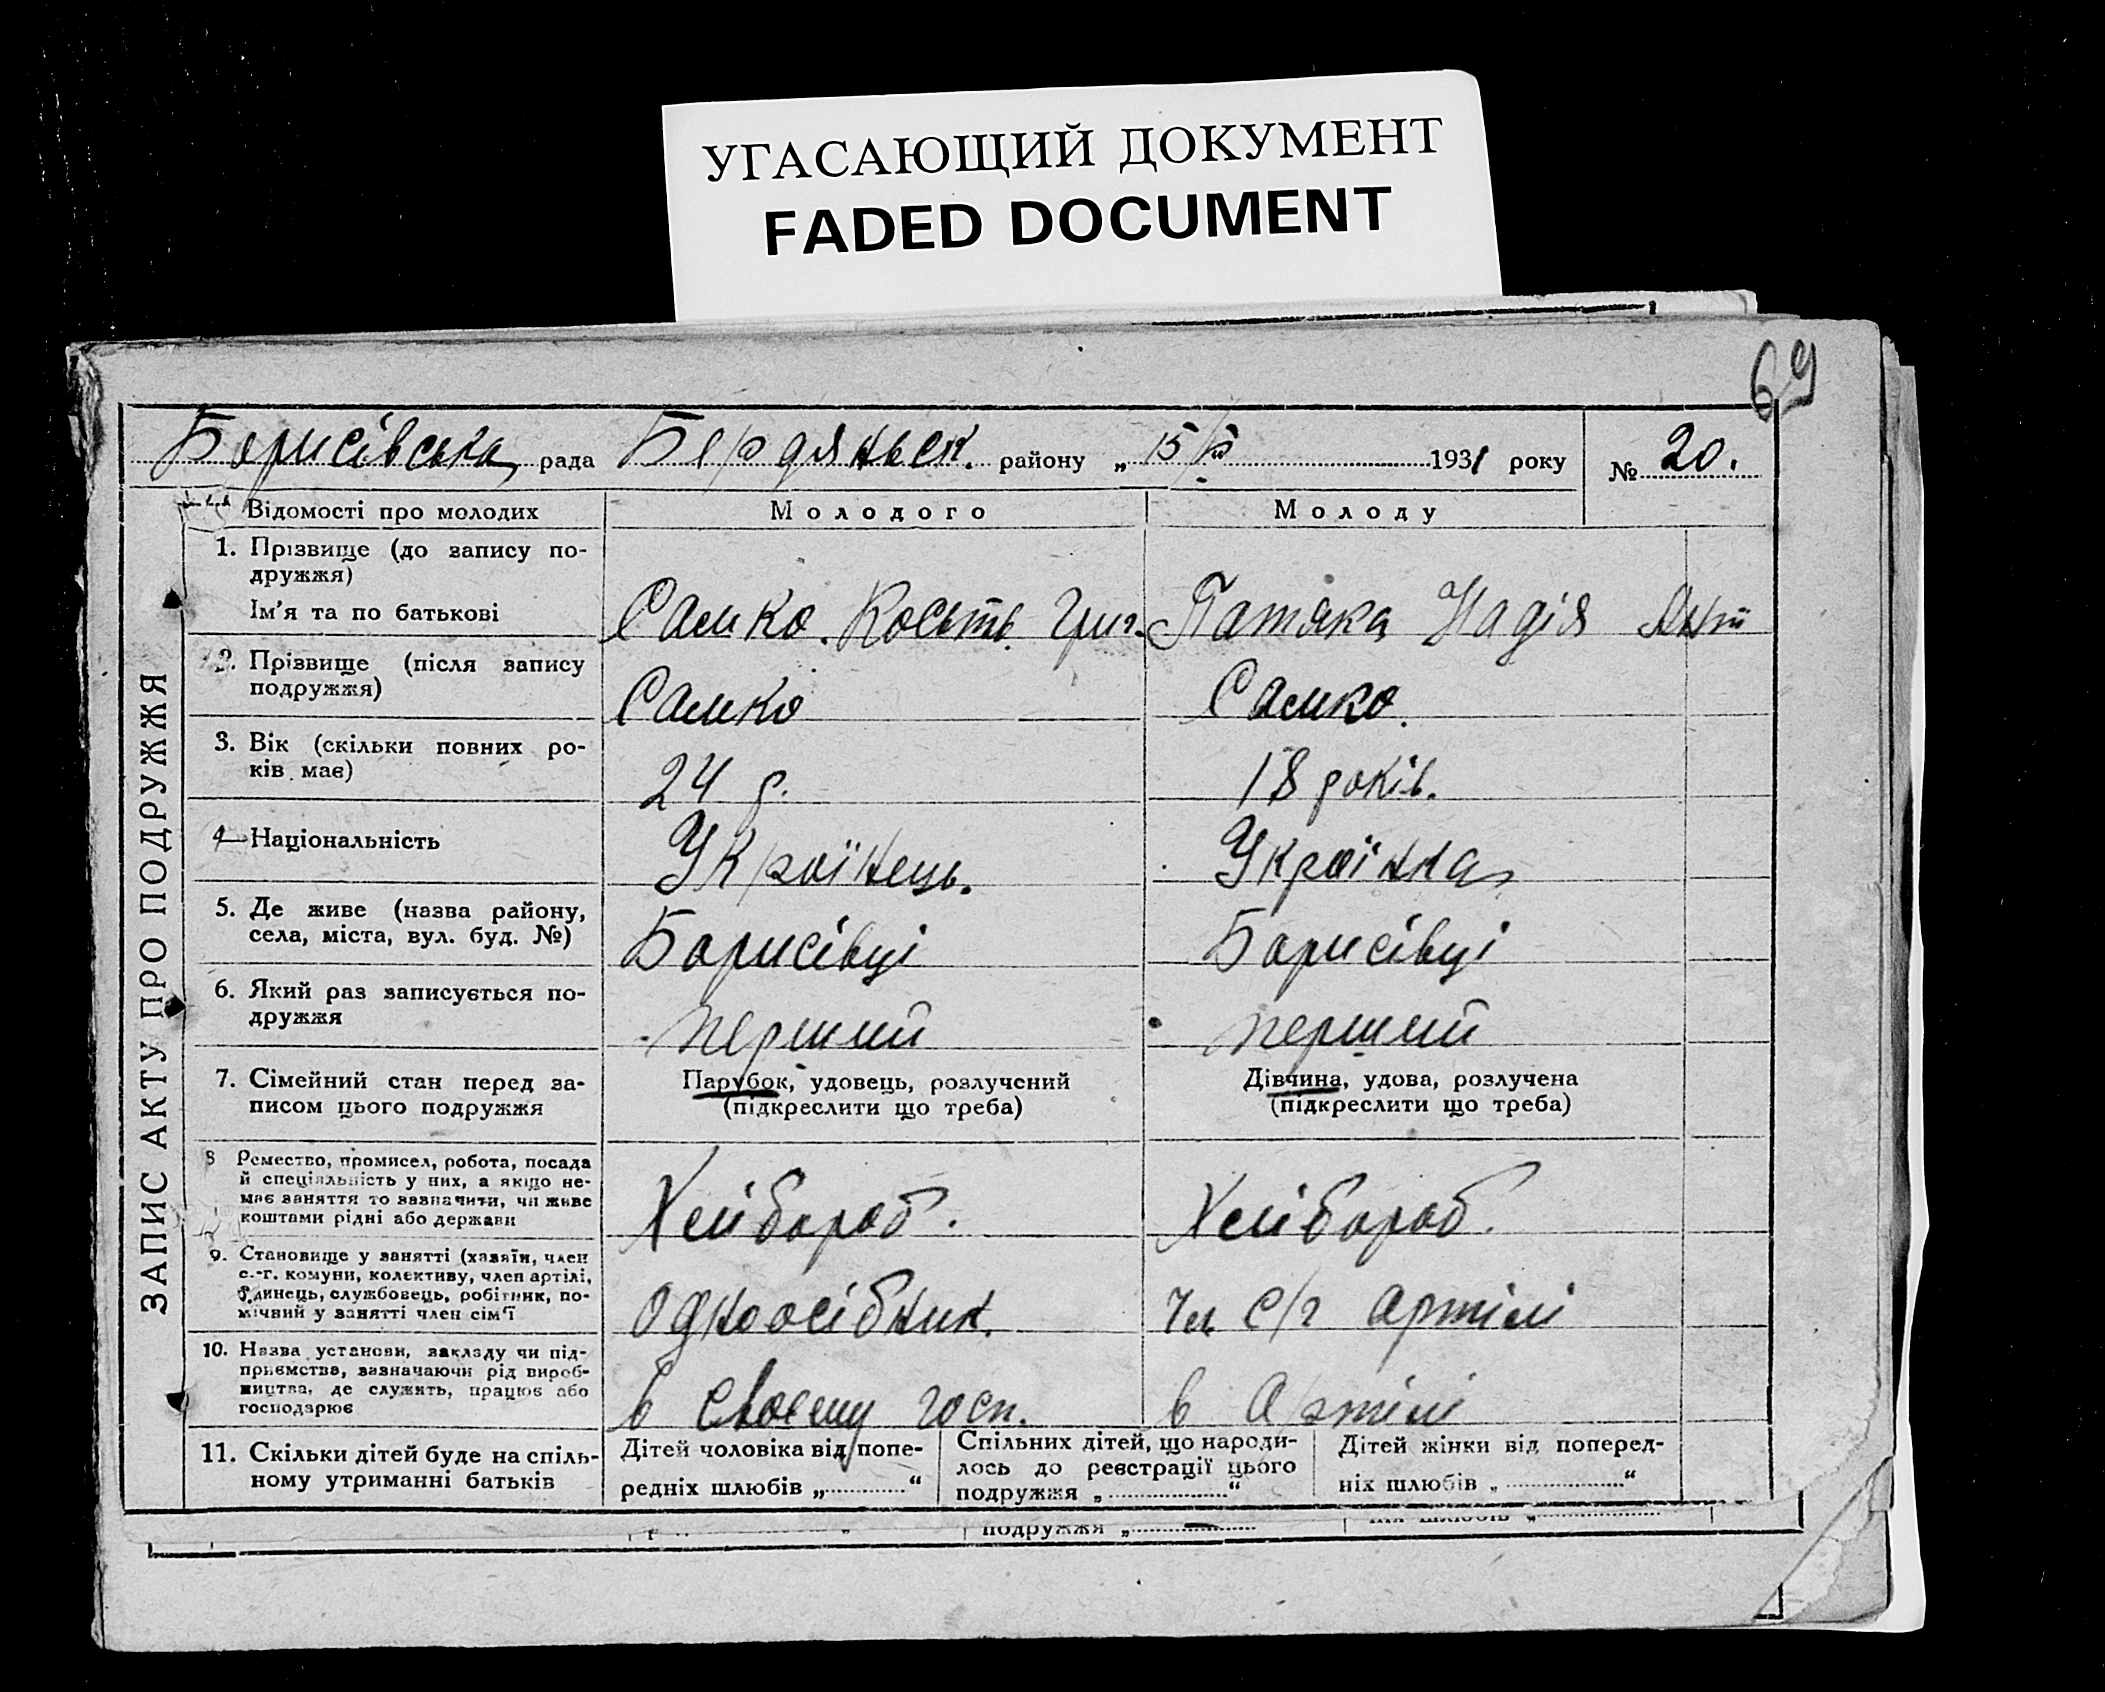 УГАСАЮЩИЙ ДОКУМЕНТ
FADED DOCUMENT
69
Борисівська рада Бердянськ. району „15/ 1931 року № 20.
ЗАПИС АКТУ ПРО ПОДРУЖЖЯ
Відомості про молодих Молодого Молоду
1. Прізвище (до запису по-
дружжя)
Ім'я та по батькові
Самко. Кость. Григ. Патяка Надія Ант
2. Прізвище (після запису
подружжя)
Самко Самко.
3. Вік (скільки повних ро-
ків має)
24 р. 18 років.
4 Національність
Українець. Українка
5. Де живе (назва району,
села, міста, вул. буд. №)
Борисівці Борисівці
6. Який раз записується по-
дружжя
перший перший
7. Сімейний стан перед за-
писом цього подружжя
Парубок, удовець, розлучений
(підкреслити що треба)
Дівчина, удова, розлучена
(підкреслити що треба)
8 Ремество, промисел, робота, посада
й спеціяльність у них, а якщо не-
має заняття то зазначити, чи живе
коштами рідні або держави
Хлібороб. Хлібороб.
9. Становище у занятті (хазяїн, член
с.-г. комуни, колективу, член артілі,
одинець, службовець, робітник, по-
мічний у занятті член сім'ї
одноосібник. Чл с/г артілі
10. Назва установи, закладу чи під-
приємства, зазначаючи рід вироб-
ництва, де служить, працює або
господарює
в своему госп. в Артілі
11. Скільки дітей буде на спіль-
ному утриманні батьків
Дітей чоловіка від попе-
редніх шлюбів „ “
Спільних дітей, що народи-
лось до реєстрації цього
подружжя „ “
Дітей жінки від поперед-
ніх шлюбів „ “
подружжя „
ніх шлюбів „